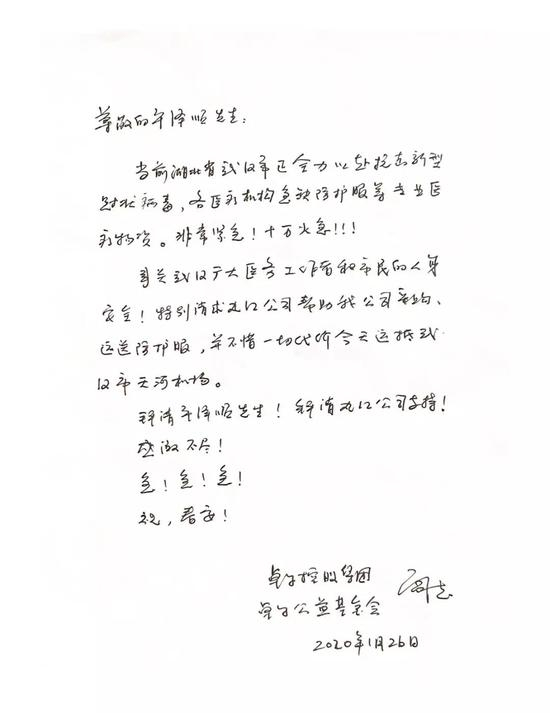 尊敬的平泽顺先生：
当前湖北省武汉市正全力以赴抗击新型
冠状病毒，各医疗机构急缺防护服等专业医
疗物资。非常紧急！十万火急!!!
事关武汉广大医务工作者和市民的人身
安全！特别请求丸红公司帮助我公司采购、
运送防护服，并不惜一切代价今天运抵武
汉市天河机场。
拜请平泽顺先生！拜请丸红公司支持！
感激不尽！
急！急！急！
祝，春安！
卓尔控股集团
卓尔公益基金会 阎志
2020年1月26日